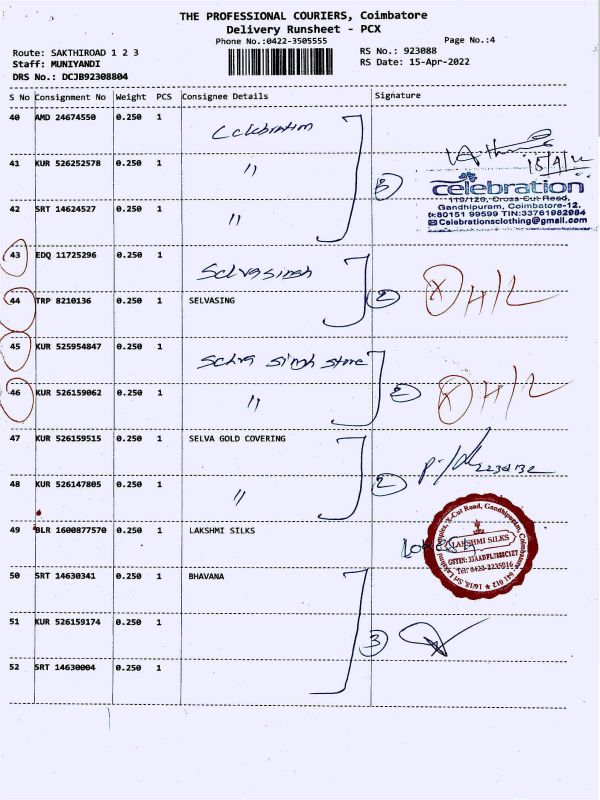 THE PROFESSIONAL COURIERS, Coimbatore
Delivery Runsheet - PCX
Phone No.:0422-3505555 Page No.:4
Route: SAKTHIROAD 1 2 3 RS No.: 923088
Staff: MUNIYANDI RS Date: 15-Apr-2022
DRS No.: DCJB92308804
S No Consignment No Weight PCS Consignee Details Signature
40 AMD 24674550 0.250 1 Celebration
15/4/22
41 KUR 526252578 0.250 1 〃
celebration
119/120, Cross Cut Road,
42 SRT 14624527 0.250 1 〃
Gandhipuram, Coimbatore-12.
80151 99599 TIN:33761982984
Celebrationsclothing@gmail.com
43 EDQ 11725296 0.250 1 Selvasingh
44 TRP 8210136 0.250 1 SELVASING 2 X H/L
45 KUR 525954847 0.250 1 Selva Singh store
46 KUR 526159062 0.250 1 〃 2 X H/L
47 KUR 526159515 0.250 1 SELVA GOLD COVERING
48 KUR 526147805 0.250 1 〃 2
49 BLR 1600877570 0.250 1 LAKSHMI SILKS
X-Cut Road, Gandhipuram, Coimbatore - 641 012 * 16/18, Sri Lakshmi
LAKSHMI SILKS
Tel: 0422-2235016
50 SRT 14630341 0.250 1 BHAVANA
51 KUR 526159174 0.250 1 3
52 SRT 14630004 0.250 1